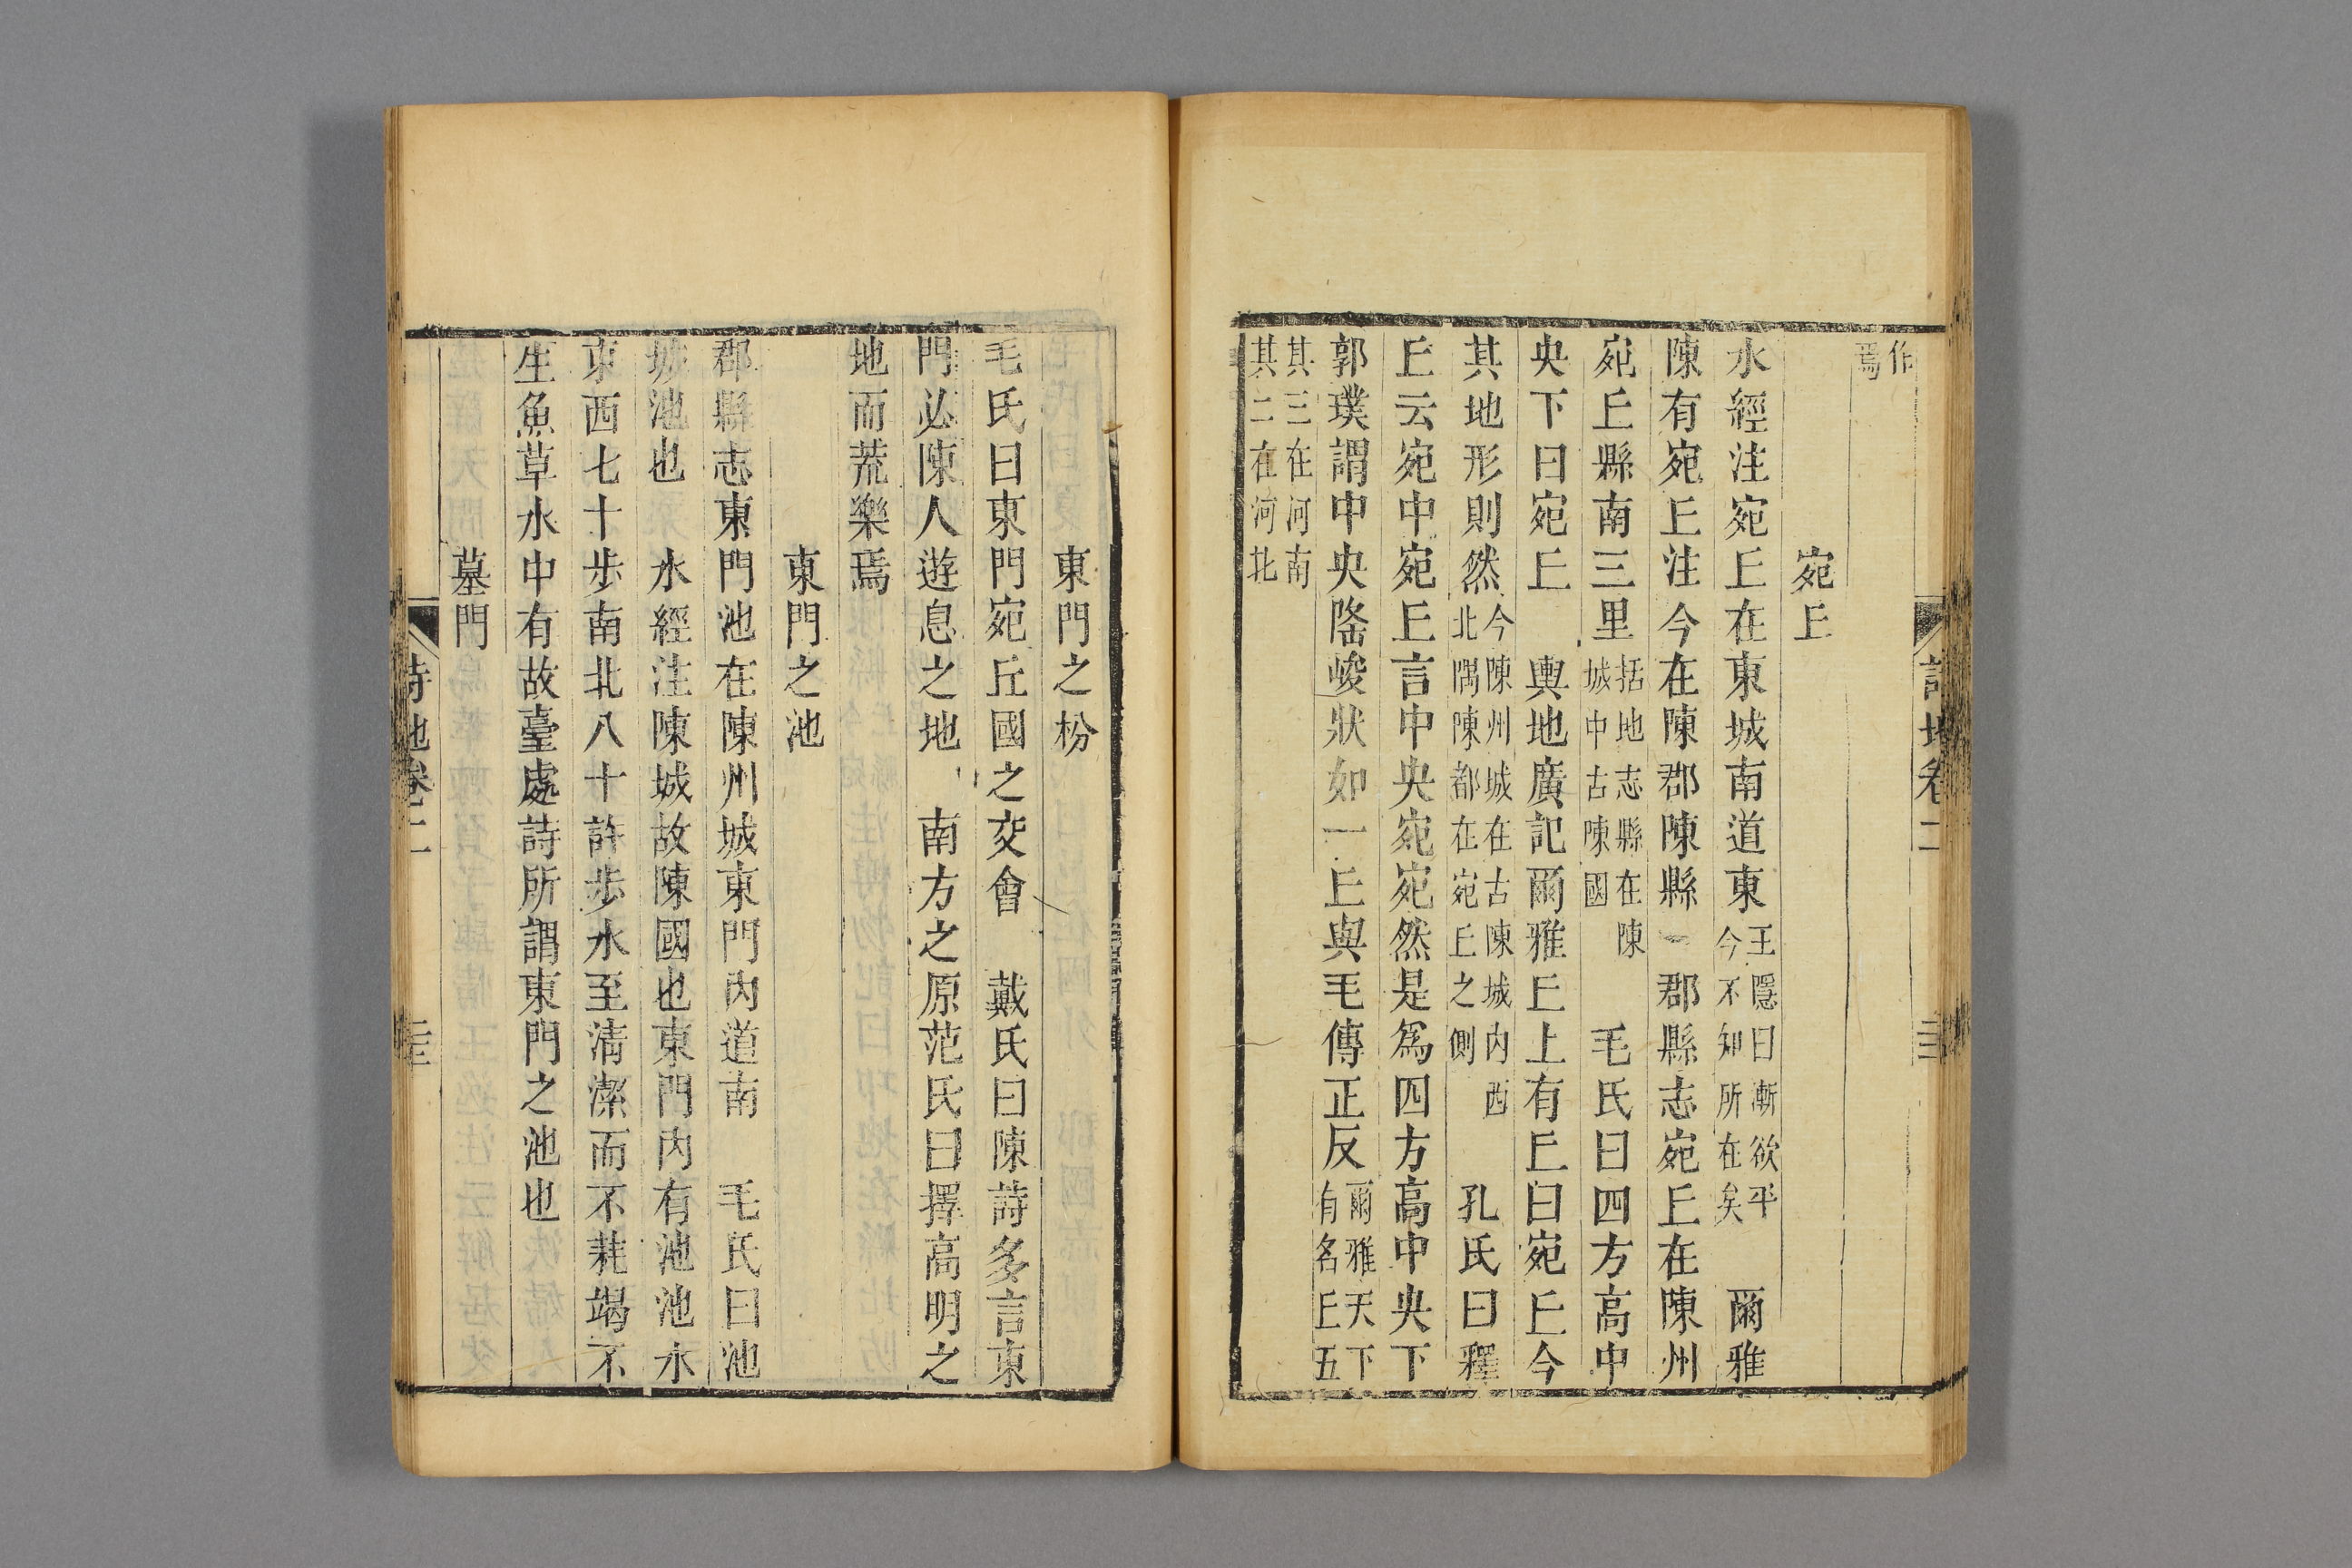 作
焉
宛𠀉
水經注宛𠀉在東城南道東王隱曰漸欲平今不知所在矣　爾雅
陳有宛𠀉注今在陳郡陳縣　郡縣志宛𠀉在陳州
宛𠀉縣南三里括地志縣在陳城中古陳國　毛氏曰四方高中
央下曰宛𠀉　輿地廣記爾雅𠀉上有𠀉曰宛𠀉今
其地形則然今陳州城在古陳城内西北隅陳都在宛𠀉之側　孔氏曰釋
𠀉云宛中宛𠀉言中央宛宛然是爲四方高中央下
郭璞謂中央隆峻狀如一𠀉與毛傳正反爾雅天下有名𠀉五
其三在河南
其二在河北
東門之枌
毛氏曰東門宛丘國之交會　戴氏曰陳詩多言東
門必陳人遊息之地　南方之原范氏曰擇高明之
地而荒樂焉
東門之池
郡縣志東門池在陳州城東門内道南　毛氏曰池
城池也　水經注陳城故陳國也東門内有池池水
東西七十步南北八十許步水至清潔而不耗竭不
生魚草水中有故臺處詩所謂東門之池也
墓門
詩地卷二